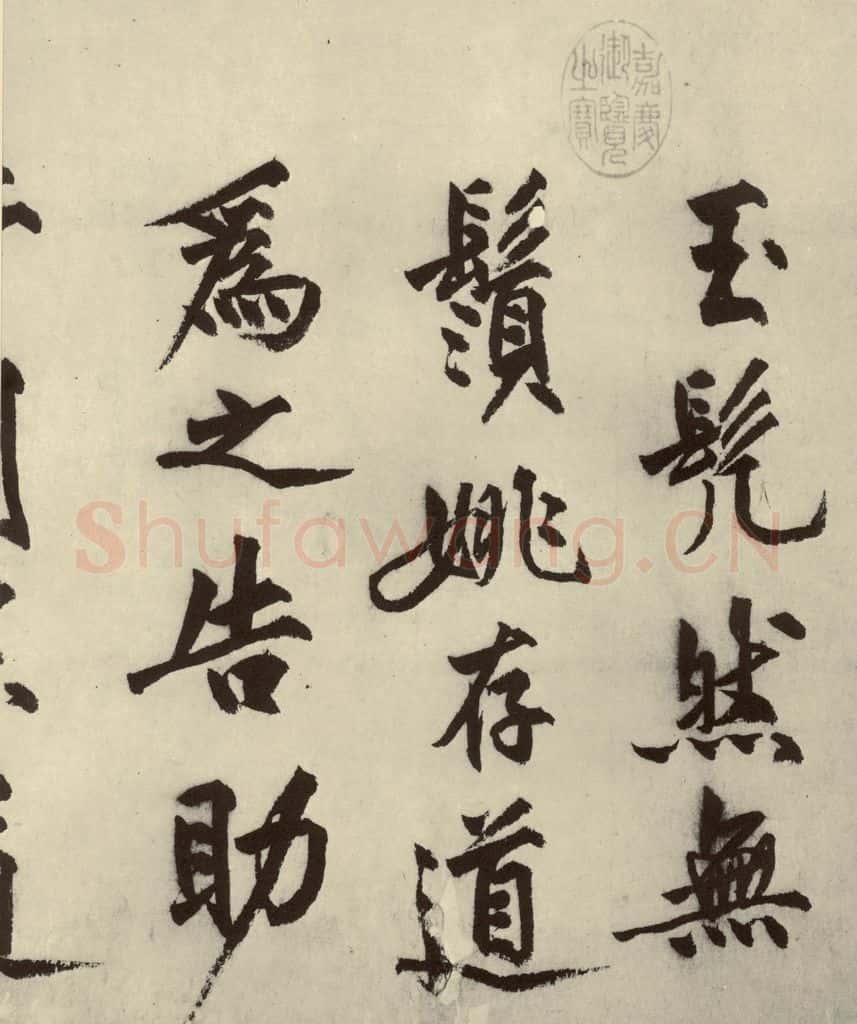 嘉慶御覽之寶
玉髡然無
鬚姚存道
爲之告助
Shufawang.CN